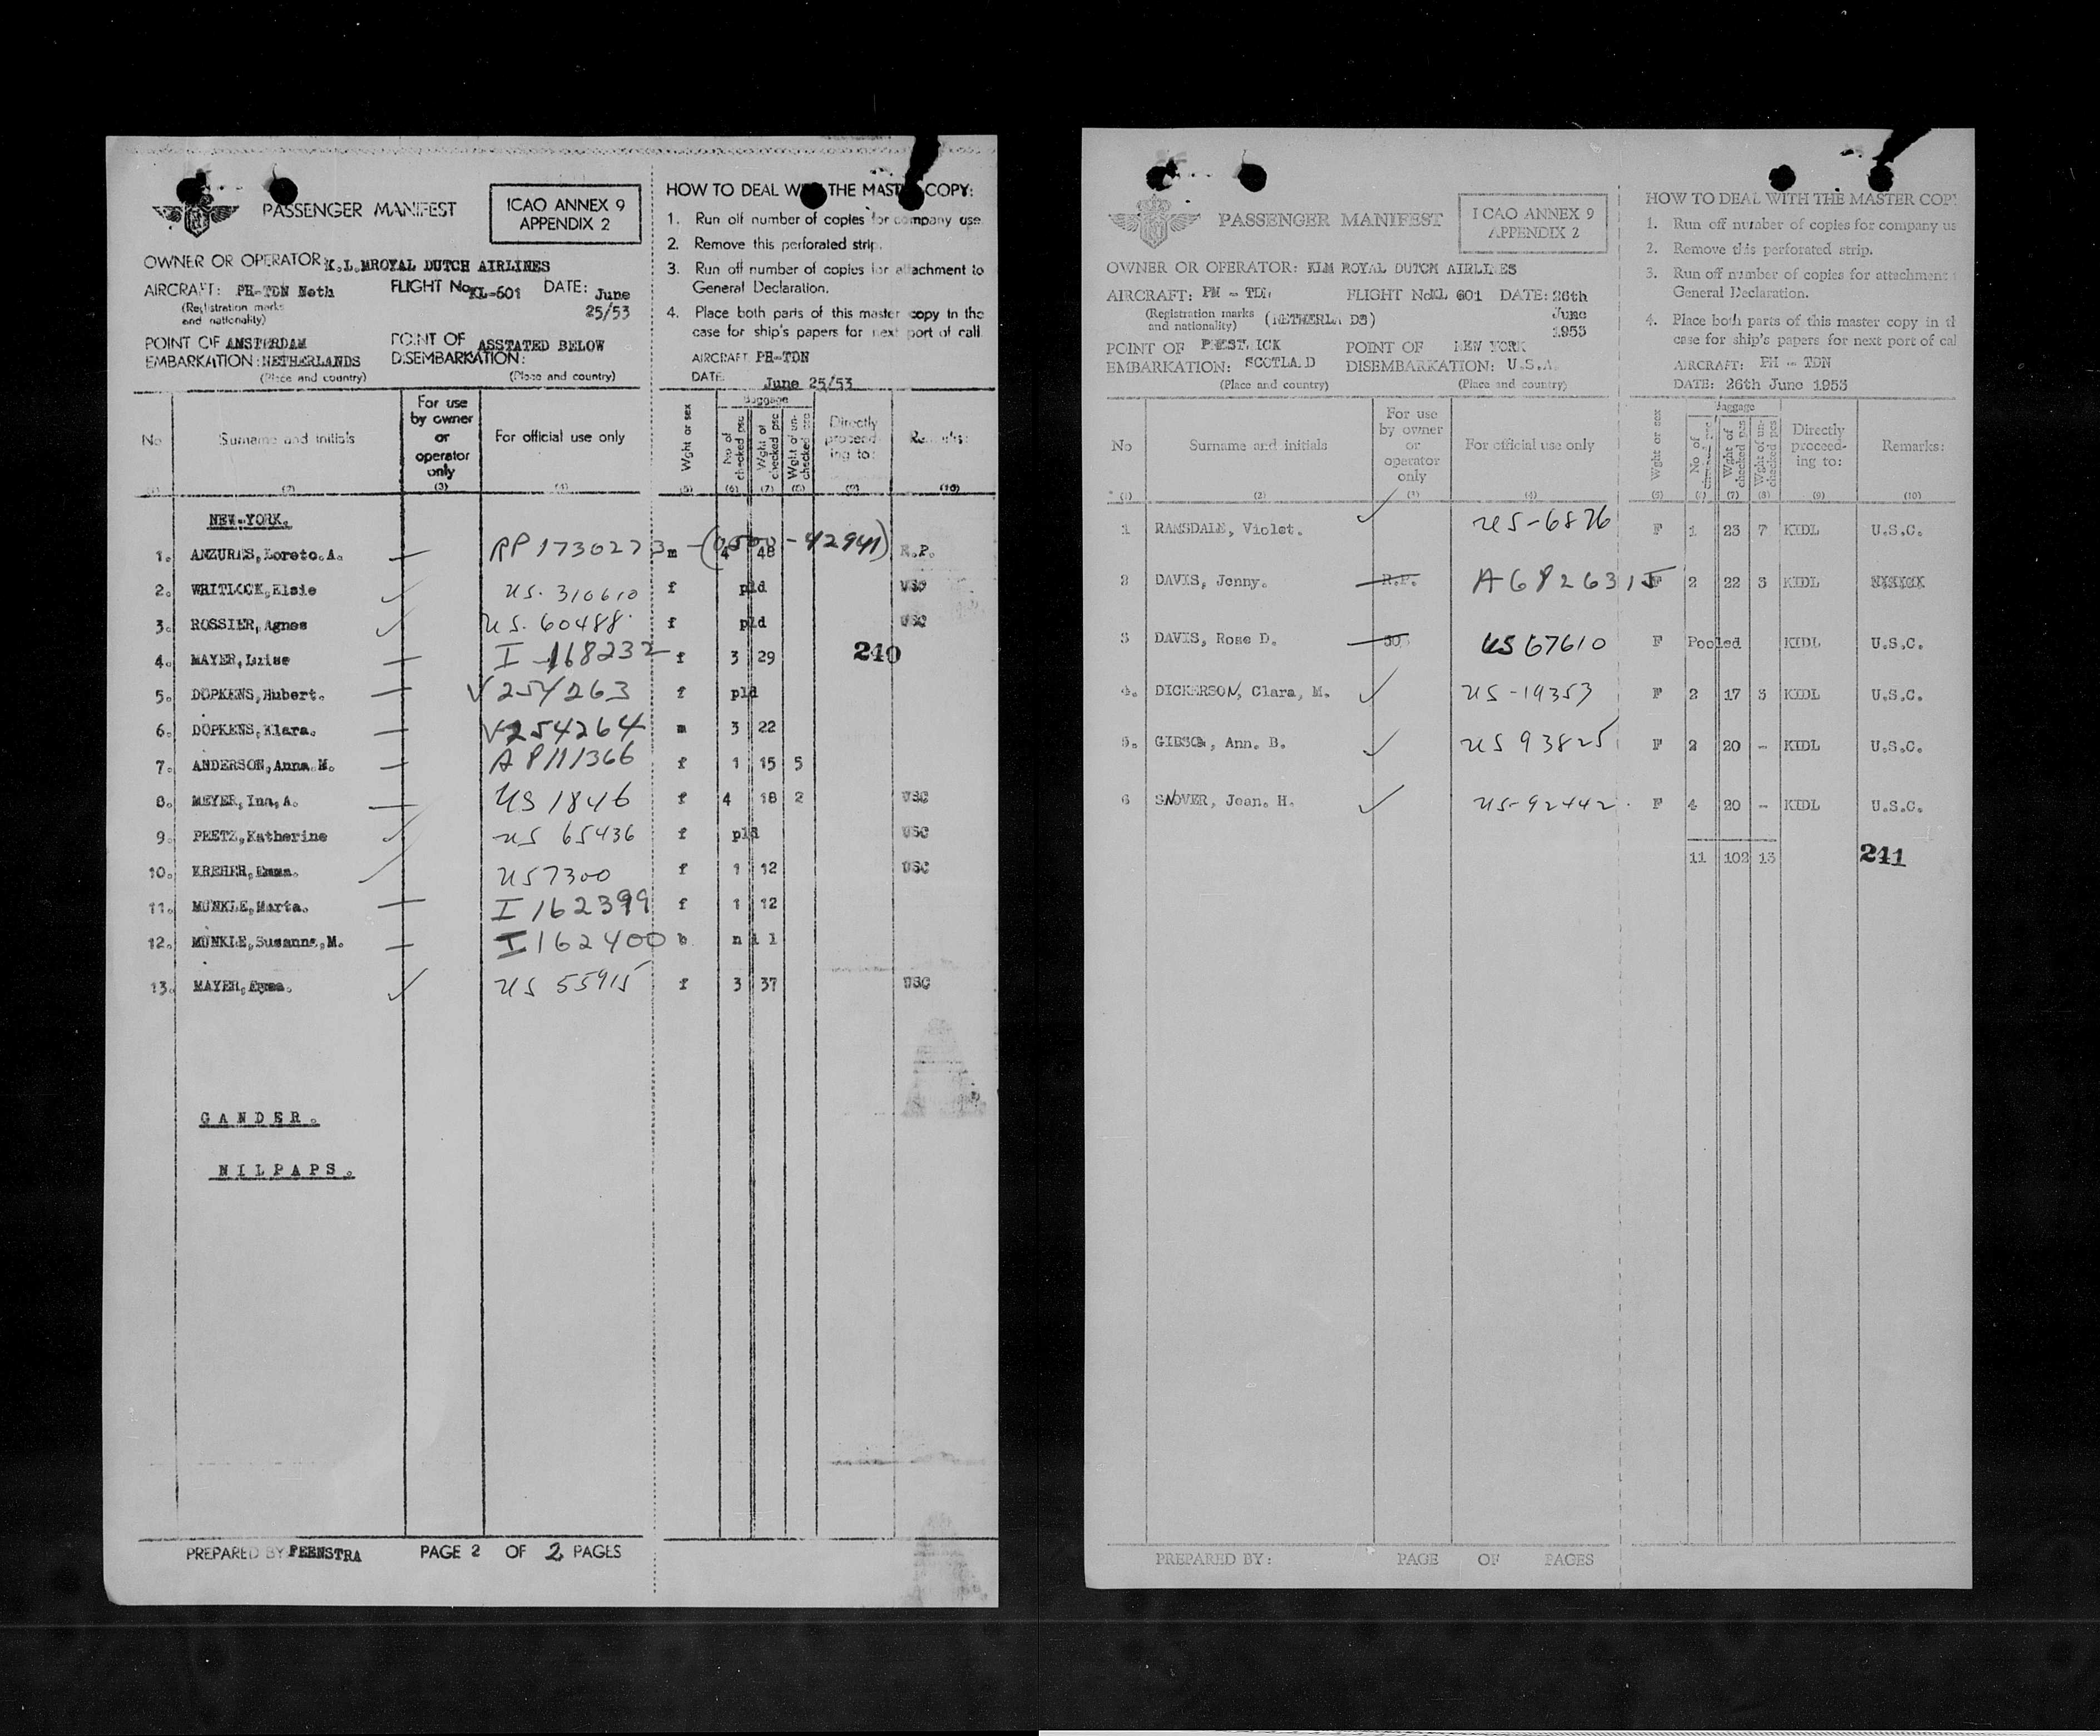 PASSENGER MANIFEST
ICAO ANNEX 9
APPENDIX 2
OWNER OR OPERATOR: K.L.MROYAL DUTCH AIRLINES
AIRCRAFT: PH-TDN Neth FLIGHT No KL-601 DATE: June
(Registration marks and nationality) 25/53
POINT OF AMSTERDAM POINT OF ASSTATED BELOW
EMBARKATION: NETHERLANDS DISEMBARKATION:
(Place and country) (Place and country)
HOW TO DEAL WITH THE MASTER COPY:
1. Run off number of copies for company use
2. Remove this perforated strip.
3. Run off number of copies for attachment to
General Declaration.
4. Place both parts of this master copy in the
case for ship's papers for next port of call
AIRCRAFT PH-TDN
DATE: June 25/53
No Surname and initials For use by owner or operator only For official use only Wght or sex Baggage No of checked pcs Wght of checked pcs Wght of un-checked pcs Directly proceed-ing to: Remarks:
(2) (3) (4) (5) (6) (7) (8) (9) (10)
NEW-YORK.
1. ANZURES, Loreto.A. — RP 1730273 m 4 48 R.P.
2. WHITLOCK, Elsie ✓ US. 310610 f pld USC
3. ROSSIER, Agnes ✓ US. 60488 f pld USC
4. MAYER, Luise — I-168232 f 3 29 240
5. DOPKENS, Hubert. — V254263 f pld
6. DOPKENS, Klara. — V254264 m 3 22
7. ANDERSON, Anna M. — A8111366 f 1 15 5
8. MEYER, Ina, A. — US 1846 f 4 18 2 USC
9. PEETZ, Katherine ✓ US 65436 f pld USC
10. KREHER, Emma. ✓ US7300 f 1 12 USC
11. MUNKLE, Marta. — I162399 f 1 12
12. MUNKLE, Susanne, M. — I162400 b nil
13. MAYER, ✓ US 55915 f 3 37 USC
GANDER.
NILPAPS.
PREPARED BY FEENSTRA PAGE 2 OF 2 PAGES
PASSENGER MANIFEST
ICAO ANNEX 9
APPENDIX 2
OWNER OR OPERATOR: KLM ROYAL DUTCH AIRLINES
AIRCRAFT: PH - TDN FLIGHT No KL 601 DATE: 26th
(Registration marks and nationality) (NETHERLA DS) June
1953
POINT OF PRESTWICK POINT OF NEW YORK
EMBARKATION: SCOTLA D DISEMBARKATION: U.S.A.
(Place and country) (Place and country)
HOW TO DEAL WITH THE MASTER COPY
1. Run off number of copies for company us
2. Remove this perforated strip.
3. Run off number of copies for attachment t
General Declaration.
4. Place both parts of this master copy in th
case for ship's papers for next port of cal
AIRCRAFT: PH - TDN
DATE: 26th June 1953
No Surname and initials For use by owner or operator only For official use only Wght or sex Baggage No of checked pcs Wght of checked pcs Wght of un-checked pcs Directly proceed-ing to: Remarks:
(1) (2) (3) (4) (5) (6) (7) (8) (9) (10)
1 RAMSDALE, Violet. ✓ US-6876 F 1 23 7 KIDL U.S.C.
2 DAVIS, Jenny. R.P. A6826315 F 2 22 3 KIDL
3 DAVIS, Rose D. US 67610 F Pooled KIDL U.S.C.
4. DICKERSON, Clara, M. ✓ US-19353 F 2 17 3 KIDL U.S.C.
5. GIBSON, Ann. B. ✓ US 93825 F 2 20 - KIDL U.S.C.
6 SNOVER, Jean. H. ✓ US-92442. F 4 20 - KIDL U.S.C.
11 102 13 241
PREPARED BY: PAGE OF PAGES